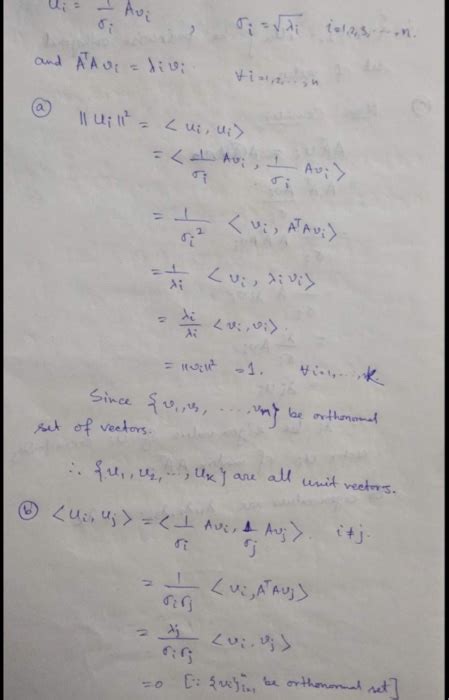 ui = 1/σi Avi , σi = √λi i=1,2,3,...,n.
and AᵀAvi = λivi. ∀i=1,2,...,n
(a) ||ui||² = <ui, ui>
= <1/σi Avi, 1/σi Avi>
= 1/σi² <vi, AᵀAvi>
= 1/λi <vi, λivi>
= λi/λi <vi, vi>.
= ||vi||² = 1. ∀i=1,...,k
Since {v1, v2, ..., vn} be orthonormal
set of vectors.
∴ {u1, u2, ..., uk} are all unit vectors.
(b) <ui, uj> = <1/σi Avi, 1/σj Avj>. i≠j.
= 1/σiσj <vi, AᵀAvj>
= λj/σiσj <vi, vj>
= 0 [∵ {vi}ⁿi=1 be orthonormal set]